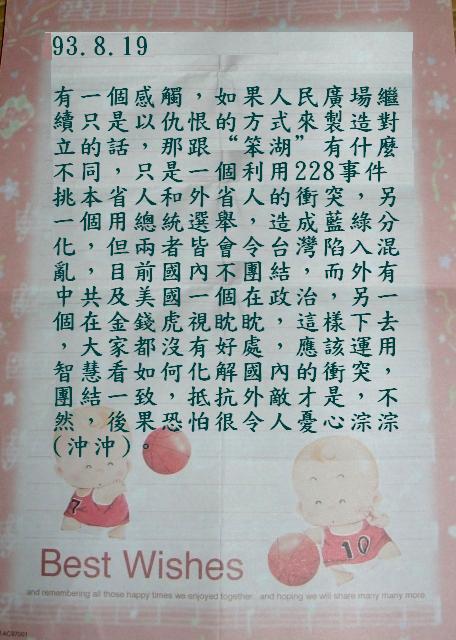 93.8.19
有一個感觸，如果人民廣場繼
續只是以仇恨的方式來製造對
立的話，那跟“笨湖”有什麼
不同，只是一個利用228事件
挑本省人和外省人的衝突，另
一個用總統選舉，造成藍綠分
化，但兩者皆會令台灣陷入混
亂，目前國內不團結，而外有
中共及美國一個在政治，另一
個在金錢虎視眈眈，這樣下去
，大家都沒有好處，應該運用
智慧看如何化解國內的衝突，
團結一致，抵抗外敵才是，不
然，後果恐怕很令人憂心淙淙
(沖沖)。
7
10
Best Wishes
and remembering all those happy times we enjoyed together and hoping we will share many many more